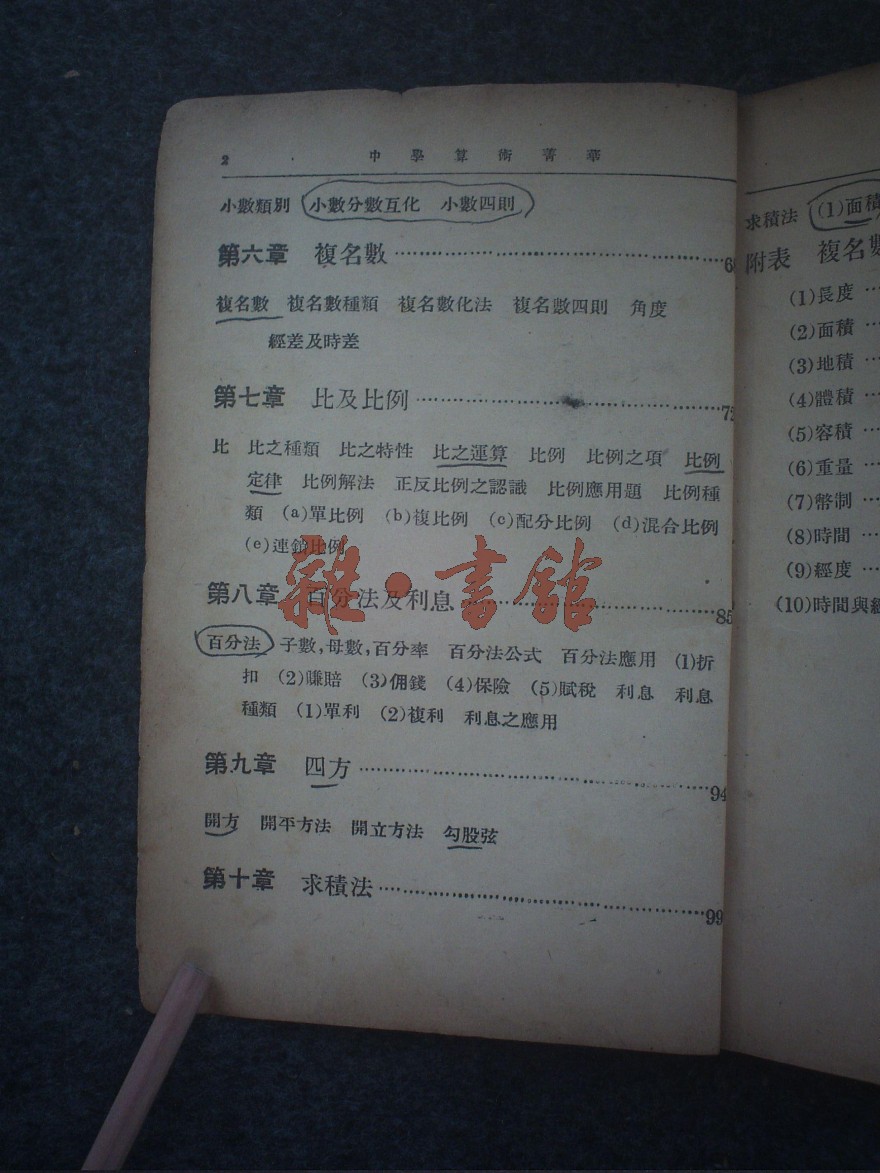 2 中學算術菁華
小數類別 小數分數互化 小數四則
第六章 複名數
複名數 複名數種類 複名數化法 複名數四則 角度
經差及時差
第七章 比及比例
比 比之種類 比之特性 比之運算 比例 比例之項 比例
定律 比例解法 正反比例之認識 比例應用題 比例種
類 (a)單比例 (b)複比例 (c)配分比例 (d)混合比例
(e)連鎖比例
第八章 百分法及利息 85
百分法 子數,母數,百分率 百分法公式 百分法應用 (1)折
扣 (2)賺賠 (3)佣錢 (4)保險 (5)賦稅 利息 利息
種類 (1)單利 (2)複利 利息之應用
第九章 四方 94
開方 開平方法 開立方法 勾股弦
第十章 求積法 99
雜·書館
求積法 (1)面積
附表 複名數
(1)長度
(2)面積
(3)地積
(4)體積
(5)容積
(6)重量
(7)幣制
(8)時間
(9)經度
(10)時間與經